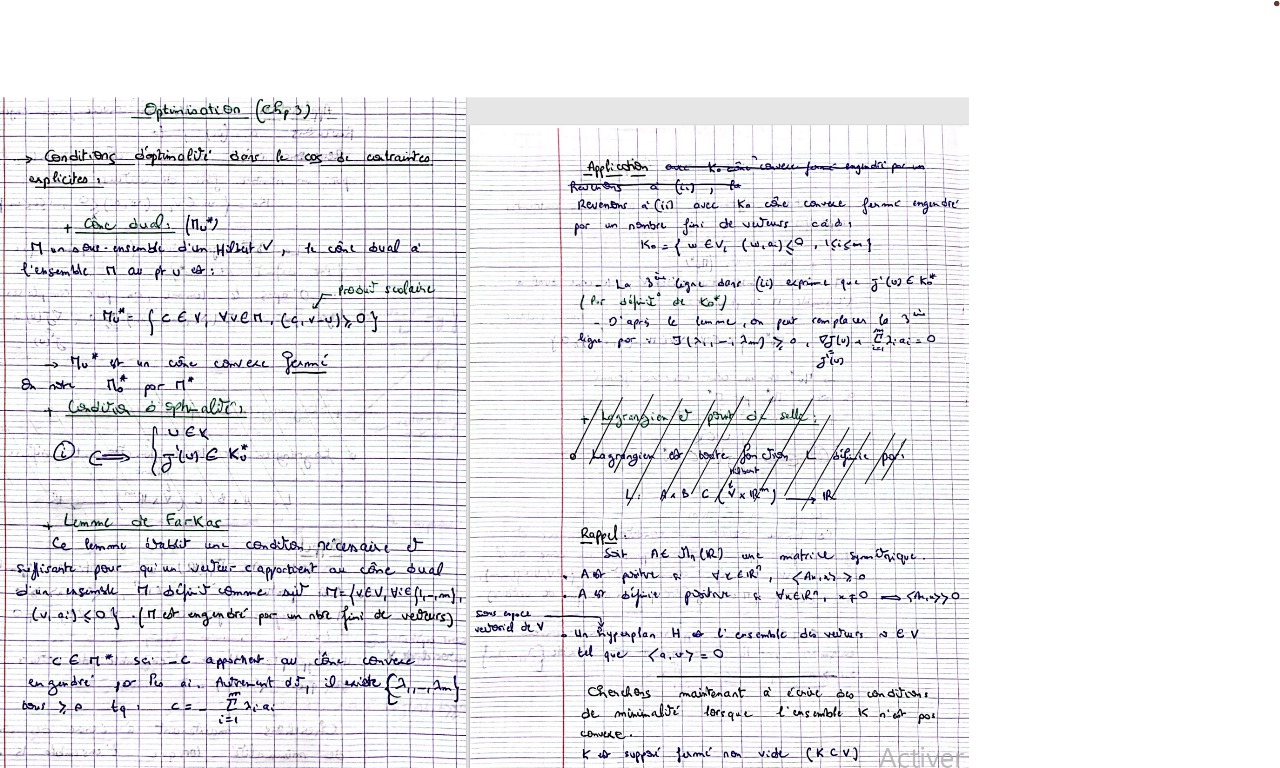 Optimisation (chp 3) :
→ Conditions d'optimalité dans le cas de contraintes
explicites :
+ Cône dual : (Mu*)
M un sous-ensemble d'un Hilbert V, le cône dual à
l'ensemble M au pt u est :
Produit scalaire
Mu* = { c ∈ V, ∀v ∈ M, (c, v-u) ≥ 0 }
→ Mu* est un cône convexe fermé
On note M0* par M*
+ Condition d'optimalité :
(i) ⟺ { u ∈ K
J'(u) ∈ Ku*
+ Lemme de Farkas
Ce lemme établit une condition nécessaire et
suffisante pour qu'un vecteur c appartient au cône dual
d'un ensemble M définit comme suit M={v∈V, ∀i∈{1,-,m},
(v, ai) ≤ 0}. (M est engendré par un nbre fini de vecteurs)
c ∈ M* ssi -c appartient au cône convexe
engendré par les ai. Autrement dit, il existe {λ1,-,λm}
tous ≥ 0 tq : c = - Σ_{i=1}^{m} λi ai
Application avec K0 cône convexe fermé engendré par un
Revenons à (ii), la
Revenons à (ii) avec K0 cône convexe fermé engendré
par un nombre fini de vecteurs càd :
K0 = { w ∈ V, (w, ai) ≤ 0, 1≤i≤m }
- La 3ème ligne dans (ii) exprime que J'(u) ∈ K0*
(Par définit° de K0*)
- D'après le lemme, on peut remplacer la 3ème
ligne par : ∃ (λ1, -, λm) ≥ 0, ∇J(u) + Σ_{i=1}^{m} λi ai = 0
J'(u)
+ Lagrangien et point de selle :
Lagrangien est toute fonction L définie par
Hilbert
L : A × B ⊂ (V × ℝᵐ) → ℝ
Rappel :
Soit A ∈ Mn(ℝ) une matrice symétrique.
• A est positive si ∀x∈ℝⁿ, <Ax,x> ≥ 0
• A est définie positive si ∀x∈ℝⁿ, x≠0 ⟹ <Ax,x> > 0
sous espace
vectoriel de V
• Un hyperplan H est l'ensemble des vecteurs v ∈ V
tel que <a, v> = 0
Cherchons maintenant à écrire des conditions
de minimalité lorsque l'ensemble K n'est pas
convexe.
K est supposé fermé non vide (K ⊂ V)
Activer